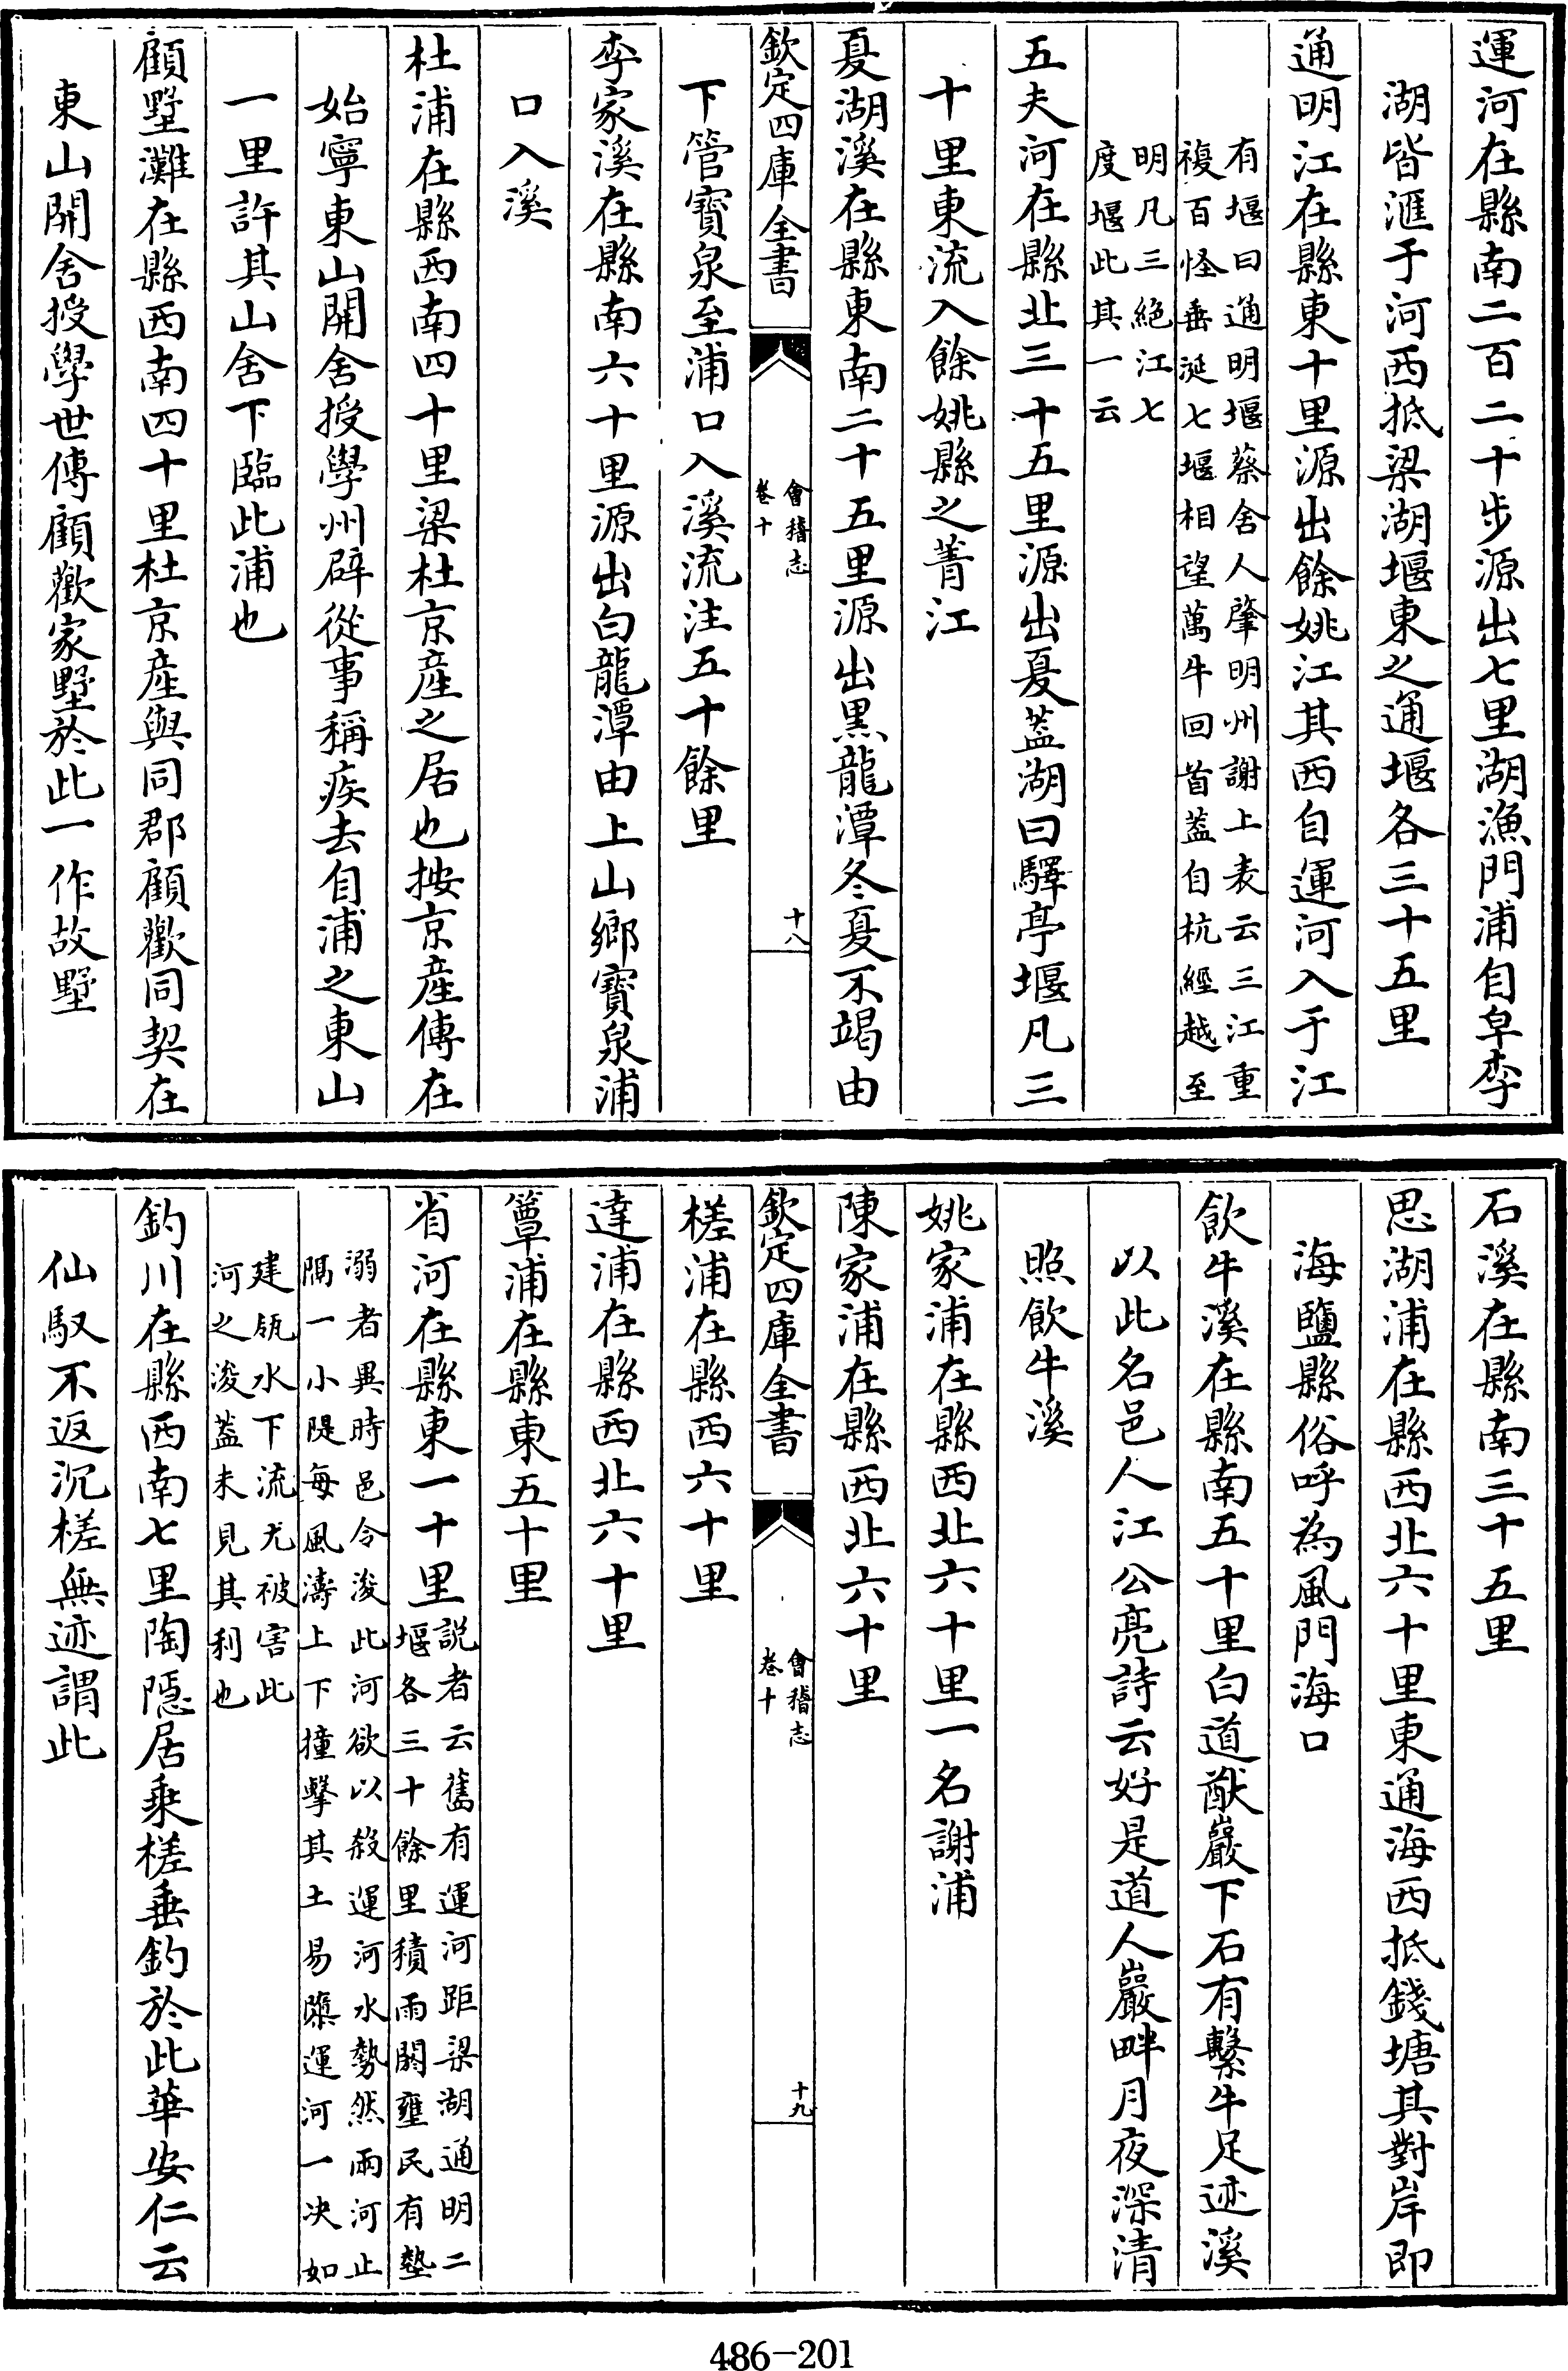 運河在縣南二百二十步源出七里湖漁門浦自皁李
湖皆滙于河西抵梁湖堰東之通堰各三十五里
通明江在縣東十里源出餘姚江其西自運河入于江
有堰曰通明堰蔡舍人肇明州謝上表云三江重
複百怪垂涎七堰相望萬牛回首蓋自杭經越至
明凡三絶江七
度堰此其一云
五夫河在縣北三十五里源出夏蓋湖曰驛亭堰凡三
十里東流入餘姚縣之菁江
夏湖溪在縣東南二十五里源出黒龍潭冬夏不竭由
欽定四庫全書
會稽志
卷十
十八
下管寳泉至浦口入溪流注五十餘里
李家溪在縣南六十里源出白龍潭由上山鄉寳泉浦
口入溪
杜浦在縣西南四十里梁杜京産之居也按京産傳在
始寧東山開舍授學州辟從事稱疾去自浦之東山
一里許其山舍下臨此浦也
顧墅灘在縣西南四十里杜京産與同郡顧歡同契在
東山開舍授學世傳顧歡家墅於此一作故墅
石溪在縣南三十五里
思湖浦在縣西北六十里東通海西抵錢塘其對岸即
海鹽縣俗呼為風門海口
飲牛溪在縣南五十里白道猷巖下石有繫牛足迹溪
以此名邑人江公亮詩云好是道人巖畔月夜深清
照飲牛溪
姚家浦在縣西北六十里一名謝浦
陳家浦在縣西北六十里
欽定四庫全書
會稽志
卷十
十九
槎浦在縣西六十里
達浦在縣西北六十里
簟浦在縣東五十里
省河在縣東一十里説者云舊有運河距梁湖通明二
堰各三十餘里積雨閼壅民有墊
溺者異時邑令浚此河欲以殺運河水勢然兩河止
隔一小隄每風濤上下撞擊其土易隳運河一决如
建瓴水下流尤被害此
河之浚蓋未見其利也
釣川在縣西南七里陶隱居乗槎垂釣於此華安仁云
仙馭不返沉槎無迹謂此
486-201